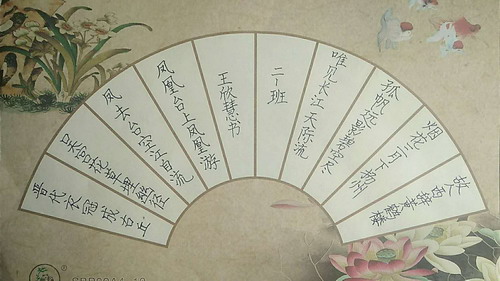 故人西辞黄鹤楼
烟花三月下扬州
孤帆远影碧空尽
唯见长江天际流
二一班
王欣慧书
凤凰台上凤凰游
凤去台空江自流
吴宫花草埋幽径
晋代衣冠成古丘